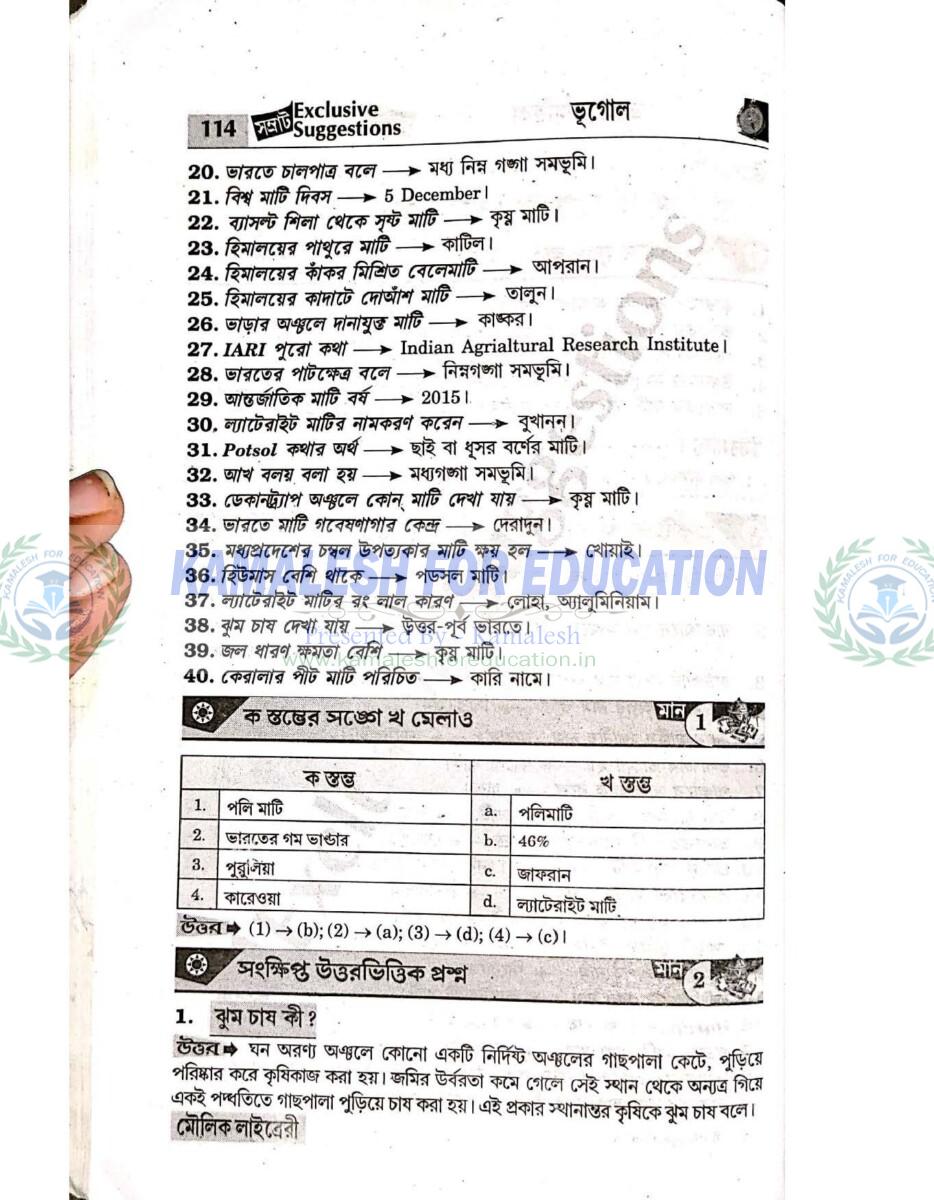 114 সম্রাট Exclusive Suggestions ভূগোল
20. ভারতে চালপাত্র বলে → মধ্য নিম্ন গঙ্গা সমভূমি।
21. বিশ্ব মাটি দিবস → 5 December।
22. ব্যাসল্ট শিলা থেকে সৃষ্ট মাটি → কৃষ্ণ মাটি।
23. হিমালয়ের পাথুরে মাটি → কাটিল।
24. হিমালয়ের কাঁকর মিশ্রিত বেলেমাটি → আপরান।
25. হিমালয়ের কাদাটে দোআঁশ মাটি → তালুন।
26. ভাঙার অঞ্চলে দানাযুক্ত মাটি → কাঙ্কর।
27. IARI পুরো কথা → Indian Agrialtural Research Institute।
28. ভারতের পাটক্ষেত্র বলে → নিম্নগঙ্গা সমভূমি।
29. আন্তর্জাতিক মাটি বর্ষ → 2015।
30. ল্যাটেরাইট মাটির নামকরণ করেন → বুখানন।
31. Potsol কথার অর্থ → ছাই বা ধূসর বর্ণের মাটি।
32. আখ বলয় বলা হয় → মধ্যগঙ্গা সমভূমি।
33. ডেকানট্র্যাপ অঞ্চলে কোন্ মাটি দেখা যায় → কৃষ্ণ মাটি।
34. ভারতে মাটি গবেষণাগার কেন্দ্র → দেরাদুন।
35. মধ্যপ্রদেশের চম্বল উপত্যকার মাটি ক্ষয় হল → খোয়াই।
KAMALESH FOR EDUCATION
36. হিউমাস বেশি থাকে → পডসল মাটি।
37. ল্যাটেরাইট মাটির রং লাল কারণ → লোহা, অ্যালুমিনিয়াম।
38. ঝুম চাষ দেখা যায় → উত্তর-পূর্ব ভারতে।
Presented By - Kamalesh
39. জল ধারণ ক্ষমতা বেশি → কৃষ্ণ মাটি।
www.kamaleshforeducation.in
40. কেরালার পীট মাটি পরিচিত → কারি নামে।
ক স্তম্ভের সঙ্গে খ মেলাও মান 1
ক স্তম্ভ খ স্তম্ভ
1. পলি মাটি a. পলিমাটি
2. ভারতের গম ভান্ডার b. 46%
3. পুরুলিয়া c. জাফরান
4. কারেওয়া d. ল্যাটেরাইট মাটি
উত্তর ➡ (1) → (b); (2) → (a); (3) → (d); (4) → (c)।
সংক্ষিপ্ত উত্তরভিত্তিক প্রশ্ন মান 2
1. ঝুম চাষ কী ?
উত্তর ➡ ঘন অরণ্য অঞ্চলে কোনো একটি নির্দিষ্ট অঞ্চলের গাছপালা কেটে, পুড়িয়ে
পরিষ্কার করে কৃষিকাজ করা হয়। জমির উর্বরতা কমে গেলে সেই স্থান থেকে অন্যত্র গিয়ে
একই পদ্ধতিতে গাছপালা পুড়িয়ে চাষ করা হয়। এই প্রকার স্থানান্তর কৃষিকে ঝুম চাষ বলে।
মৌলিক লাইব্রেরী
KAMALESH FOR EDUCATION
KAMALESH FOR EDUCATION